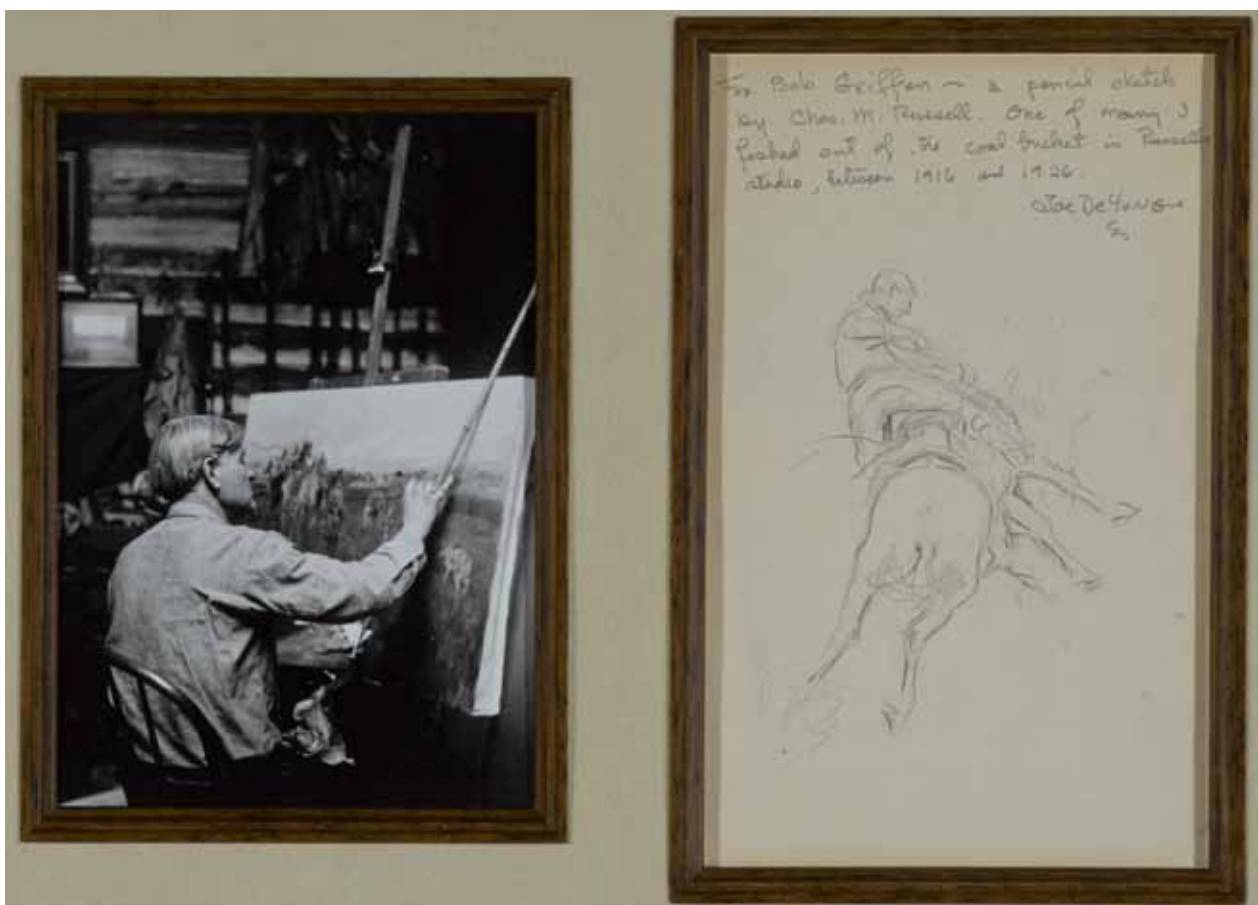 For Bob Griffen ~ a pencil sketch
by Chas. M. Russell. One of many I
fished out of the coal bucket in Russell's
studio, between 1916 and 1926.
Joe De Yong